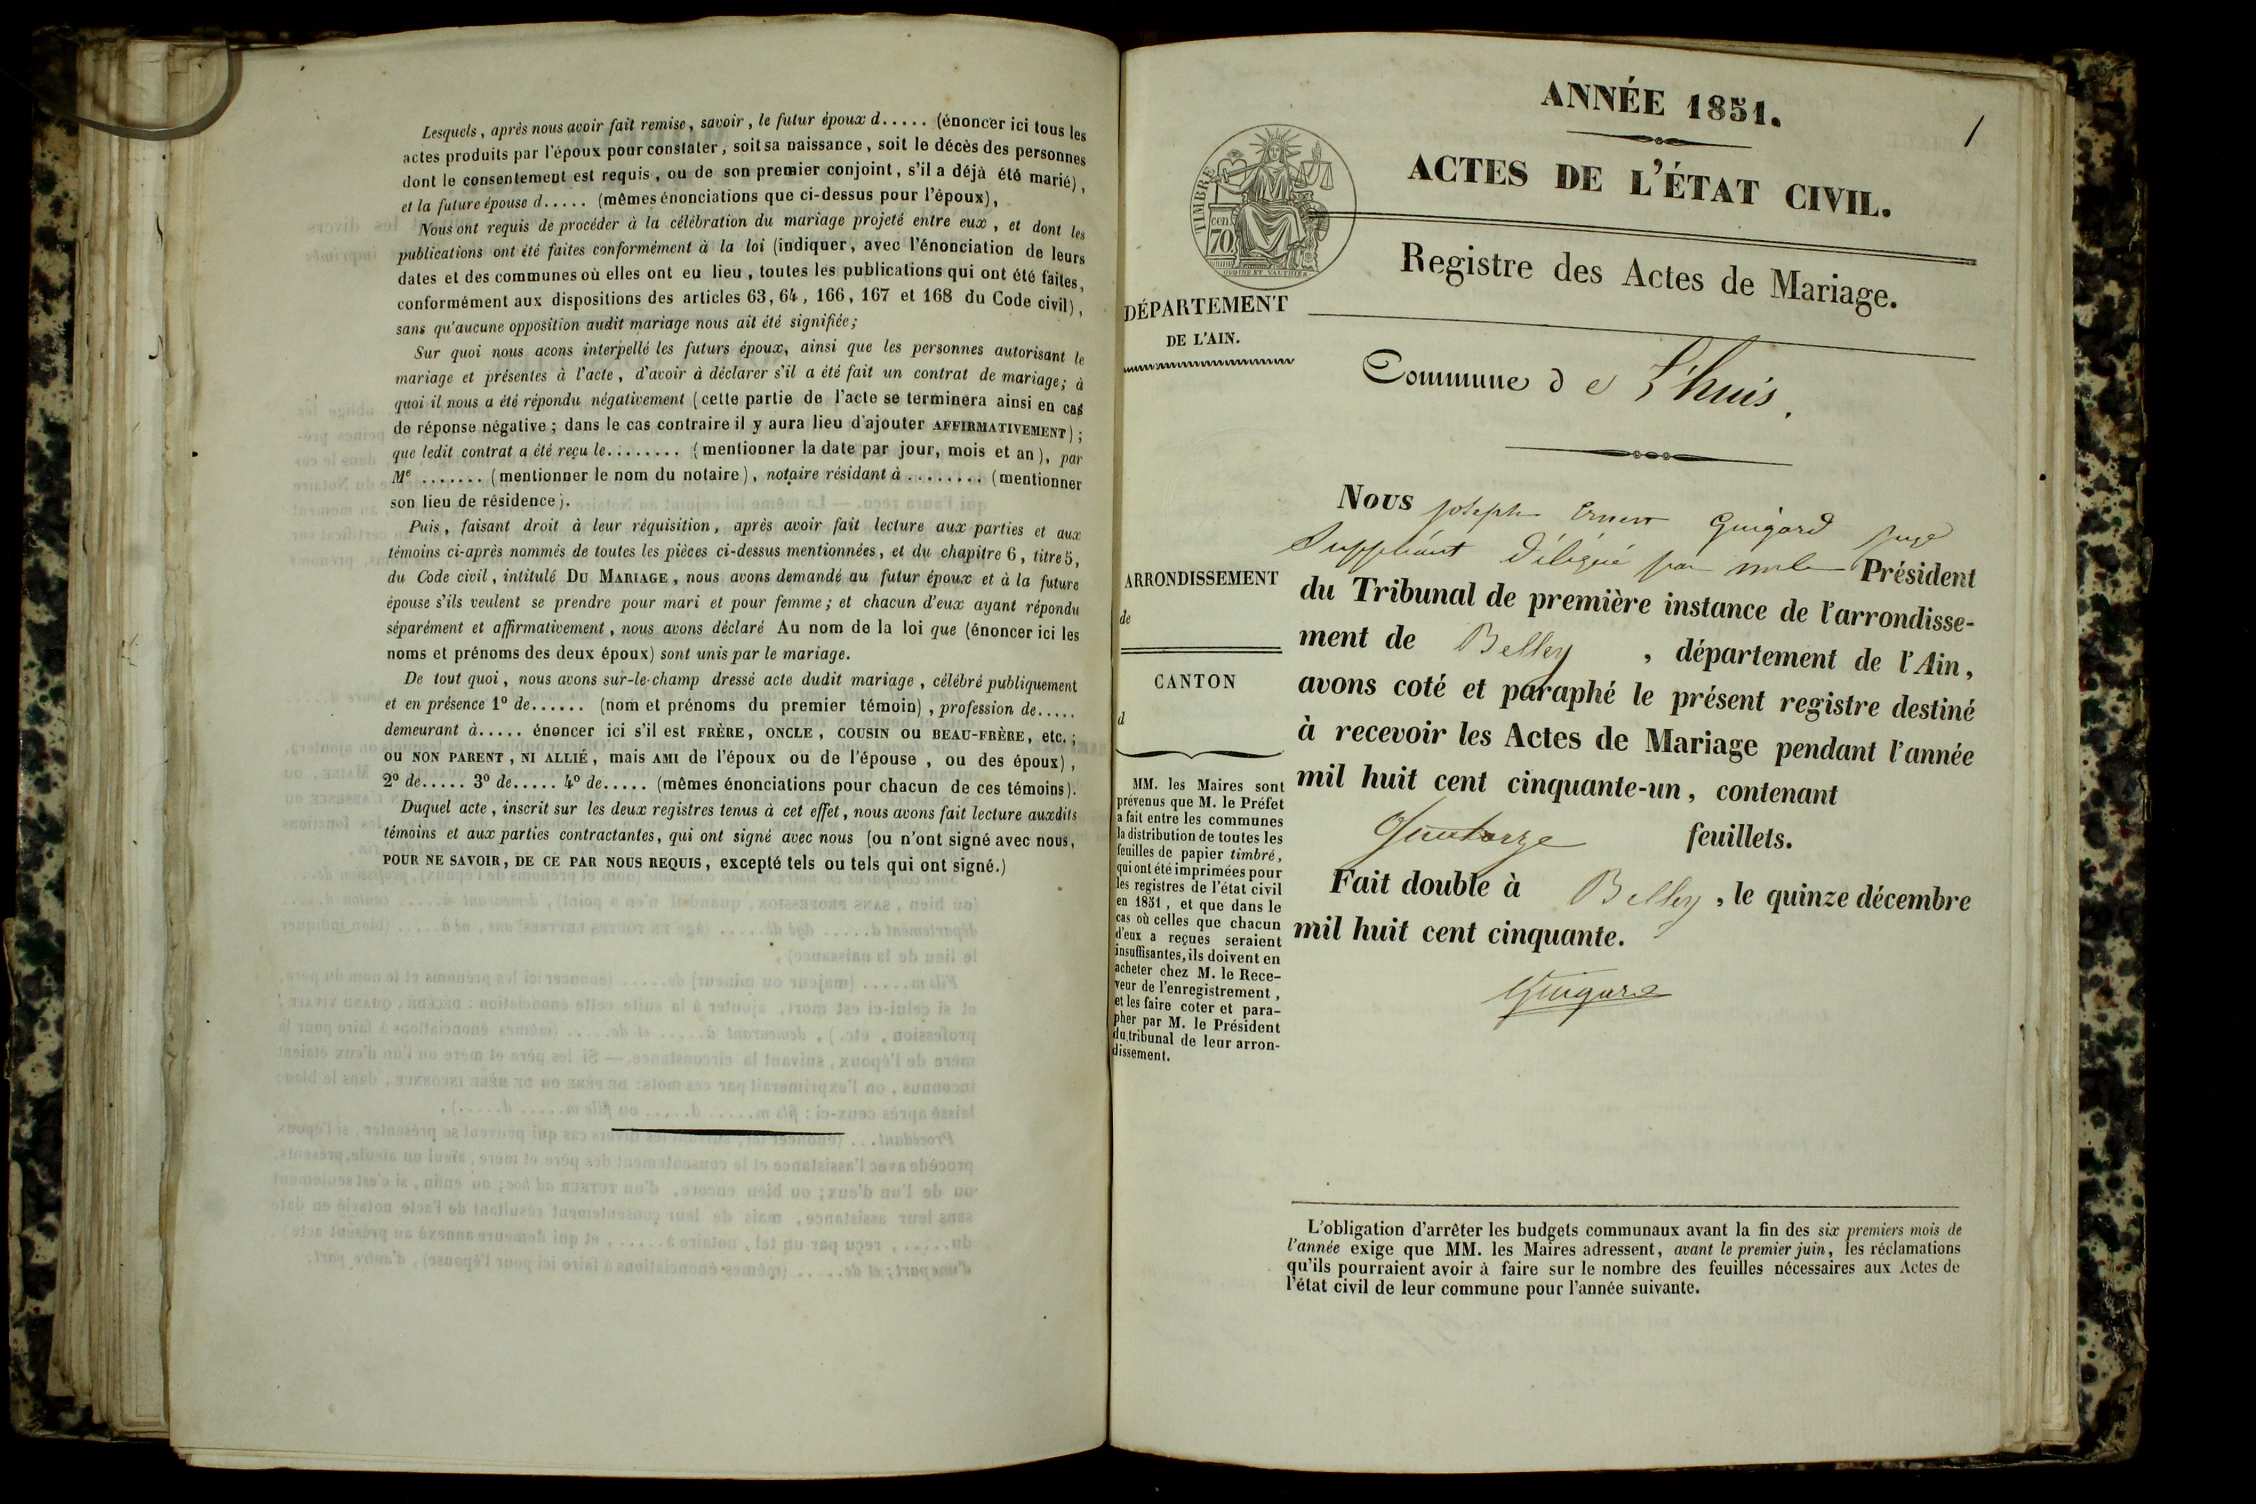 Lesquels, après nous avoir fait remise, savoir, le futur époux d..... (énoncer ici tous les
actes produits par l'époux pour constater, soit sa naissance, soit le décès des personnes
dont le consentement est requis, ou de son premier conjoint, s'il a déjà été marié),
et la future épouse d..... (mêmes énonciations que ci-dessus pour l'époux),
Nous ont requis de procéder à la célébration du mariage projeté entre eux, et dont les
publications ont été faites conformément à la loi (indiquer, avec l'énonciation de leurs
dates et des communes où elles ont eu lieu, toutes les publications qui ont été faites,
conformément aux dispositions des articles 63, 64, 166, 167 et 168 du Code civil),
sans qu'aucune opposition audit mariage nous ait été signifiée;
Sur quoi nous acons interpellé les futurs époux, ainsi que les personnes autorisant le
mariage et présentes à l'acte, d'avoir à déclarer s'il a été fait un contrat de mariage; à
quoi il nous a été répondu négativement (cette partie de l'acte se terminera ainsi en cas
de réponse négative; dans le cas contraire il y aura lieu d'ajouter AFFIRMATIVEMENT);
que ledit contrat a été reçu le........ (mentionner la date par jour, mois et an), par
Me ....... (mentionner le nom du notaire), notaire résidant à ........ (mentionner
son lieu de résidence).
Puis, faisant droit à leur réquisition, après avoir fait lecture aux parties et aux
témoins ci-après nommés de toutes les pièces ci-dessus mentionnées, et du chapitre 6, titre 5,
du Code civil, intitulé DU MARIAGE, nous avons demandé au futur époux et à la future
épouse s'ils veulent se prendre pour mari et pour femme; et chacun d'eux ayant répondu
séparément et affirmativement, nous avons déclaré Au nom de la loi que (énoncer ici les
noms et prénoms des deux époux) sont unis par le mariage.
De tout quoi, nous avons sur-le-champ dressé acte dudit mariage, célébré publiquement
et en présence 1º de...... (nom et prénoms du premier témoin), profession de.....
demeurant à..... énoncer ici s'il est FRÈRE, ONCLE, COUSIN ou BEAU-FRÈRE, etc.;
ou NON PARENT, NI ALLIÉ, mais AMI de l'époux ou de l'épouse, ou des époux),
2º de..... 3º de..... 4º de..... (mêmes énonciations pour chacun de ces témoins).
Duquel acte, inscrit sur les deux registres tenus à cet effet, nous avons fait lecture auxdits
témoins et aux parties contractantes, qui ont signé avec nous (ou n'ont signé avec nous,
POUR NE SAVOIR, DE CE PAR NOUS REQUIS, excepté tels ou tels qui ont signé.)
1
ANNÉE 1851.
ACTES DE L'ÉTAT CIVIL.
TIMBRE
cen
70
Registre des Actes de Mariage.
DÉPARTEMENT
DE L'AIN.
Commune de L'huis.
ARRONDISSEMENT
de
CANTON
d
MM. les Maires sont
prévenus que M. le Préfet
a fait entre les communes
la distribution de toutes les
feuilles de papier timbré,
qui ont été imprimées pour
les registres de l'état civil
en 1851, et que dans le
cas où celles que chacun
d'eux a reçues seraient
insuffisantes, ils doivent en
acheter chez M. le Rece-
veur de l'enregistrement,
et les faire coter et para-
pher par M. le Président
du tribunal de leur arron-
dissement.
Nous joseph Ernest Guigard juge
Suppléant Délégué par Président
du Tribunal de première instance de l'arrondisse-
ment de Belley, département de l'Ain,
avons coté et paraphé le présent registre destiné
à recevoir les Actes de Mariage pendant l'année
mil huit cent cinquante-un, contenant
Quatorze feuillets.
Fait double à Belley, le quinze décembre
mil huit cent cinquante.
Guigard
L'obligation d'arrêter les budgets communaux avant la fin des six premiers mois de
l'année exige que MM. les Maires adressent, avant le premier juin, les réclamations
qu'ils pourraient avoir à faire sur le nombre des feuilles nécessaires aux Actes de
l'état civil de leur commune pour l'année suivante.